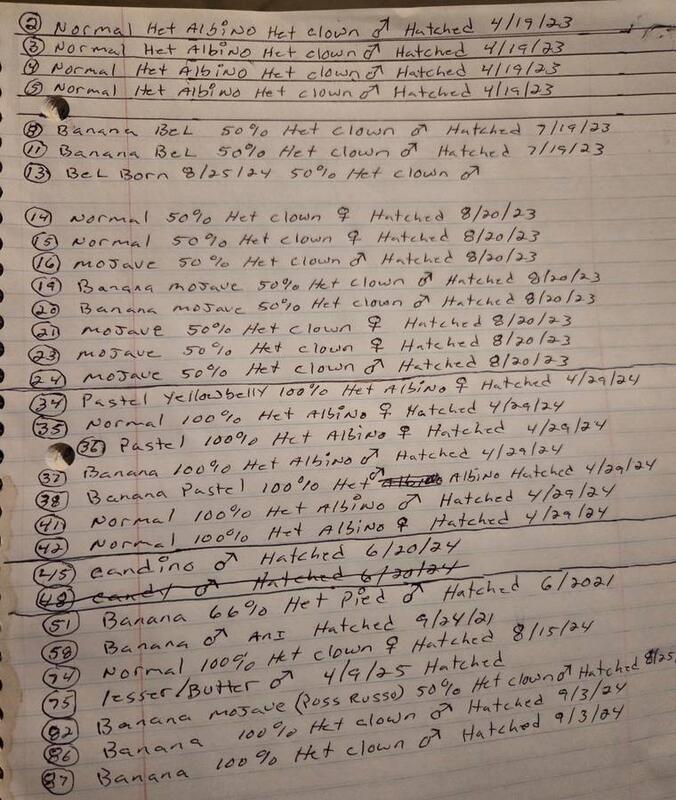 (2) Normal Het Albino Het clown ♂ Hatched 4/19/23
(3) Normal Het Albino Het clown ♂ Hatched 4/19/23
(4) Normal Het Albino Het clown ♂ Hatched 4/19/23
(5) Normal Het Albino Het clown ♂ Hatched 4/19/23
(9) Banana BeL 50% Het clown ♂ Hatched 7/19/23
(11) Banana BeL 50% Het clown ♂ Hatched 7/19/23
(13) BeL Born 8/25/24 50% Het clown ♂
(14) Normal 50% Het clown ♀ Hatched 8/20/23
(15) Normal 50% Het clown ♀ Hatched 8/20/23
(16) mojave 50% Het clown ♂ Hatched 8/20/23
(19) Banana mojave 50% Het clown ♂ Hatched 8/20/23
(20) Banana mojave 50% Het clown ♂ Hatched 8/20/23
(21) mojave 50% Het clown ♀ Hatched 8/20/23
(23) mojave 50% Het clown ♀ Hatched 8/20/23
(24) mojave 50% Het clown ♂ Hatched 8/20/23
(34) Pastel Yellowbelly 100% Het Albino ♀ Hatched 4/29/24
(35) Normal 100% Het Albino ♀ Hatched 4/29/24
(36) Pastel 100% Het Albino ♀ Hatched 4/29/24
(37) Banana 100% Het Albino ♂ Hatched 4/29/24
(38) Banana Pastel 100% Het ♂ Albino Albino Hatched 4/29/24
(41) Normal 100% Het Albino ♂ Hatched 4/29/24
(42) Normal 100% Het Albino ♀ Hatched 4/29/24
(45) candino ♂ Hatched 6/20/24
(48) candy ♂ Hatched 6/20/24
(51) Banana 66% Het Pied ♂ Hatched 6/2021
(58) Banana ♂ AnI Hatched 9/24/21
(74) Normal 100% Het clown ♀ Hatched 8/15/24
(75) lesser/Butter ♂ 4/9/25 Hatched
(82) Banana mojave (Poss Russo) 50% Het clown ♂ Hatched 8/25/
(86) Banana 100% Het clown ♂ Hatched 9/3/24
(87) Banana 100% Het clown ♂ Hatched 9/3/24